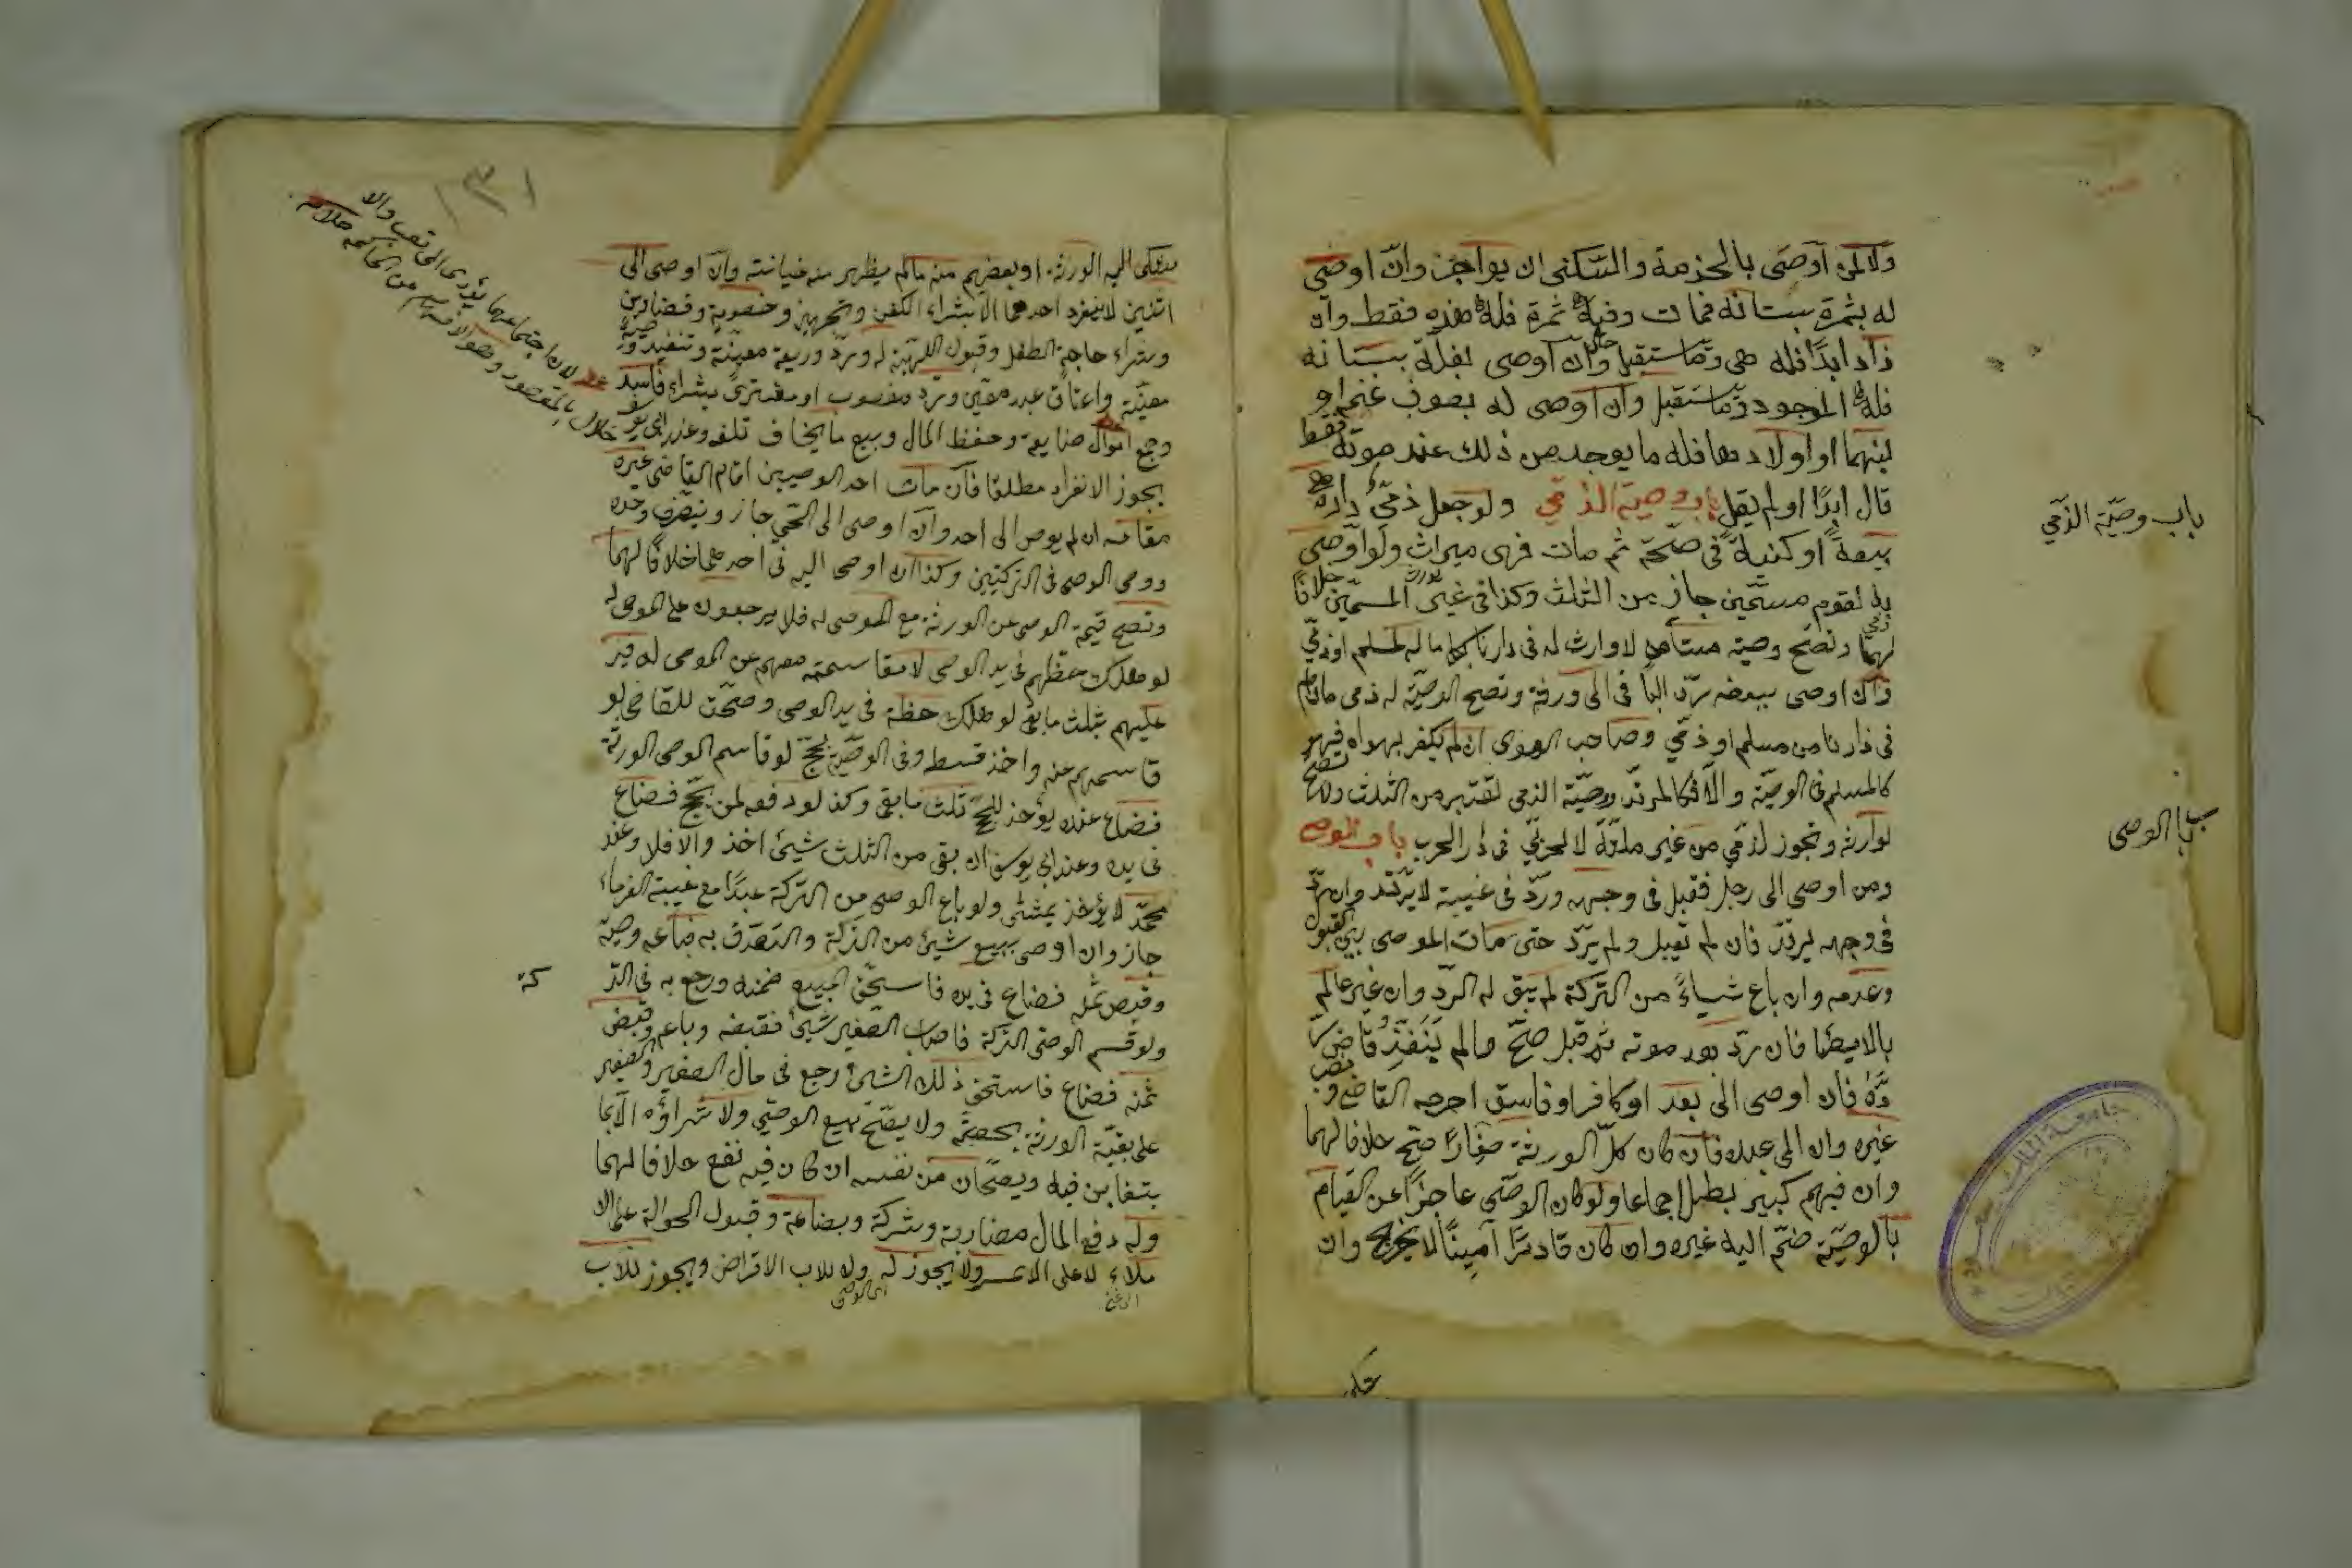 ولا لمن اوصى بالخدمة والسكنى ان يواجر وان اوصى
له بثمرة بستانه فمات وفيه ثمرة فله هذه فقط وان
زاد ابدًا فله هى وما يستقبل وان اوصى بغلة بستانه
فله الموجود وما يستقبل وان اوصى له بصوف غنم او
لبنها او اولادها فله ما يوجد من ذلك عند موته فقط
قال ابدًا او لم يقل باب وصية الذمي ولو جعل ذمي داره
بيعة او كنيسة فى صحته ثم مات فهى ميراث ولو اوصى
به لقوم مسمين جاز من الثلث وكذا فى غير المسمين خلافا
لهما وتصح وصية مستأمن لا وارث له فى دارنا بكل ماله لمسلم او ذمي
وان اوصى ببعضه رد الباقى الى ورثته وتصح الوصية له ذمى مادام
فى دارنا من مسلم او ذمي وصاحب الهوى ان لم يكفر بهواه فهو
كالمسلم فى الوصية والا فكالمرتد ووصية الذمى تعتبر من الثلث ولا تصح
لوارثه وتجوز لذمي من غير ملته لا لحربي فى دار الحرب باب الوصى
ومن اوصى الى رجل فقبل فى وجهه ورد فى غيبته لا يرتد وان رد
فى وجهه يرتد فان لم يقبل ولم يرد حتى مات الموصى بين القبول
وعدمه وان باع شياءً من التركة لم يبق له الرد وان غير عالم
بالايصا فان رد بعد موته ثم قبل صح ما لم ينفذ قاض ر
ده فان اوصى الى عبد او كافر او فاسق اخرجه القاضى ونصب
غيره وان الى عبده فان كان كل الورثة صغارًا صح خلافا لهما
وان فيهم كبير بطل اجماعا ولو كان الوصي عاجزًا عن القيام
بالوصية ضم اليه غيره وان كان قادرًا امينًا لا يخرج وان
باب وصية الذمي
باب الوصى
١٣١
شكى اليه الورثة او بعضهم منه ما لم يظهر منه خيانته وان اوصى الى
اثنين لا ينفرد احدهما الا بشراء الكفن وتجهيز وخصومة وقضاء دين
وشراء حاجة الطفل وقبول الهبة له ورد وديعة معينة وتنفيذ وصية
معينة واعتاق عبد معين ورد مغصوب او مشترى بشراء فاسد
وجمع اموال ضايعة وحفظ المال وبيع ما يخاف تلفه وعند ابى يوسف
يجوز الانفراد مطلقا فان مات احد الوصيين اقام القاضى غيره
مقامه ان لم يوص الى احد وان اوصى الى الحي جاز ويتصرف وحده
ووصى الوصى وصى فى التركتين وكذا ان اوصى اليه فى احدهما خلافًا لهما
وتصح قسمة الوصى عن الورثة مع الموصى له فلا يرجعون على الموصى له
لو هلك حظهم فى يد الوصى لا مقاسمته معهم عن الموصى له فيرجع
عليهم بثلث ما بقى لو هلك حظه فى يد الوصى وصحت للقاضى لو
قاسمهم عنه واخذ قسطه وفى الوصية بحج لو قاسم الوصى الورثة
فضاع عنده يؤخذ للحج ثلث ما بقى وكذا لو دفعه لمن يحج فضاع
فى يده وعند ابى يوسف ان بقى من الثلث شيئ اخذ والا فلا وعند
محمد لا يؤخذ بشئى ولو باع الوصى من التركة عبدًا مع غيبة الغرماء
جاز وان اوصى ببيع شيئ من التركة والتصدق به فباعه وصيه
وقبض ثمنه فضاع فى يده فاستحق المبيع ضمنه ورجع به فى التر كة
ولو قسم الوصى التركة فاصاب الصغير شيئ فقبضه وباعه وقبض
ثمنه فضاع فاستحق ذلك الشيئ رجع فى مال الصغير والصغير
على بقية الورثة بحصته ولا يصح بيع الوصي ولا شراؤه الا بما
يتغابن فيه ويصحان من نفسه ان كان فيه نفع خلافا لهما
وله دفع المال مضاربة وشركة وبضاعة وقبول الحوالة على الا
ملاء لا على الاعسر ولا يجوز له ولا للاب الاقراض ويجوز للاب